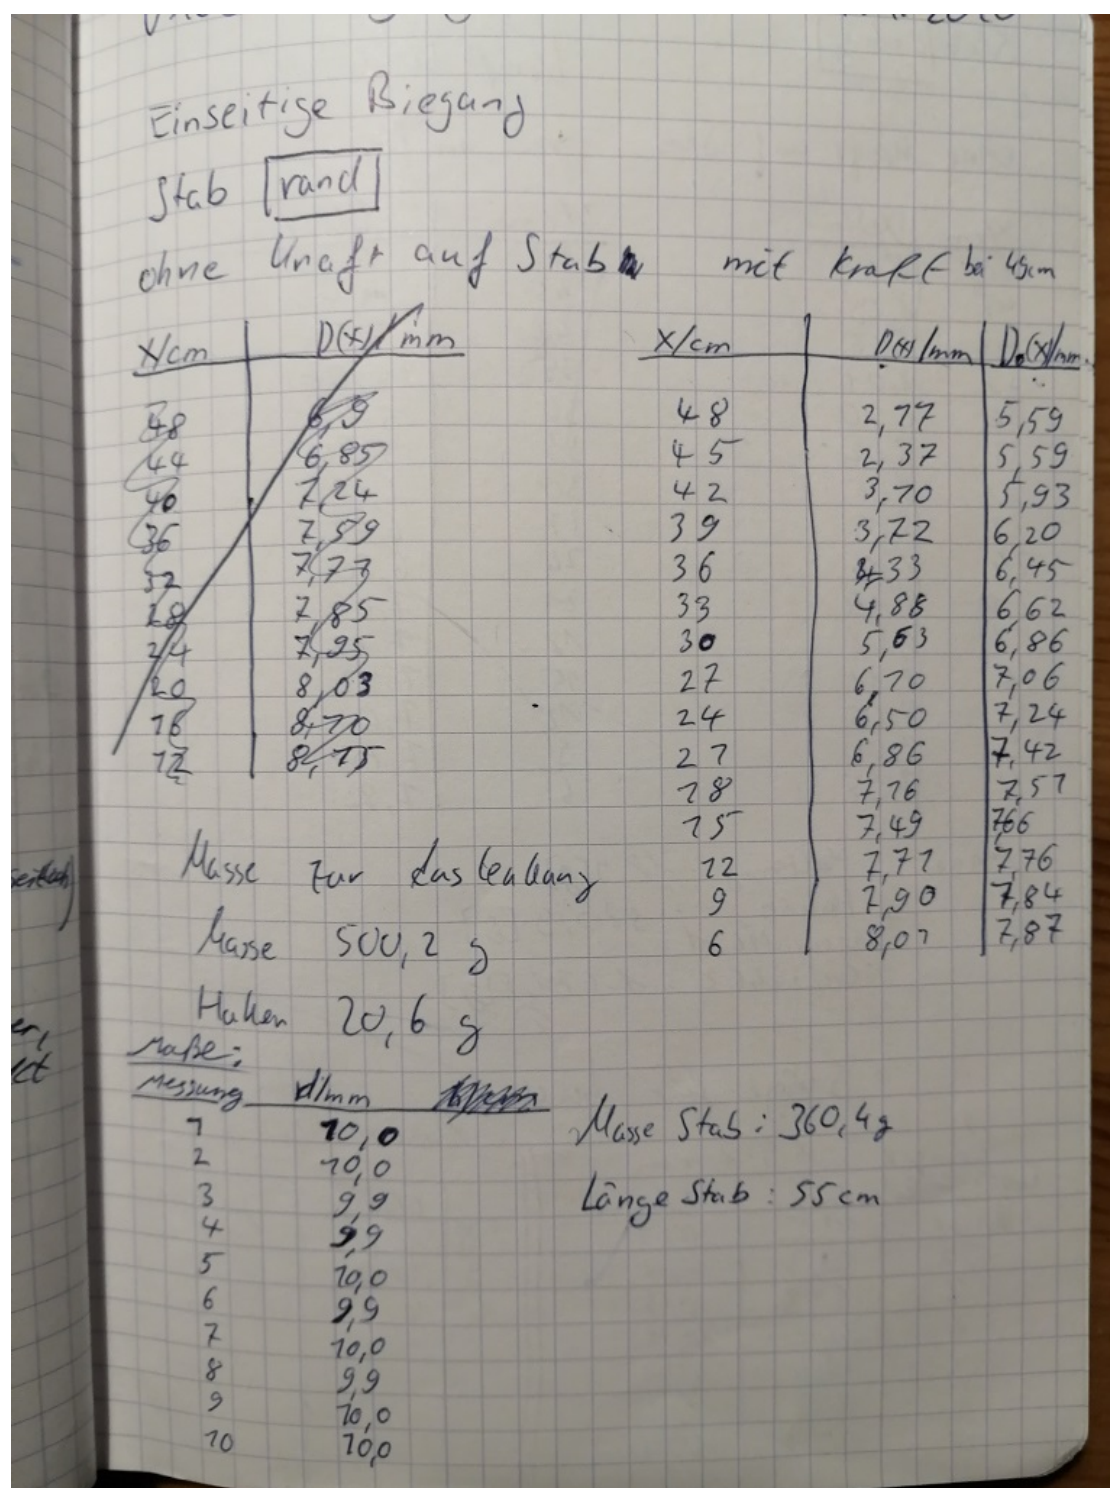 Einseitige Biegung
Stab rund
ohne Kraft auf Stab
X/cm D(x)/mm
48 6,9
44 6,85
40 7,24
36 7,59
32 7,77
28 7,85
24 7,95
20 8,03
16 8,10
12 8,15
mit Kraft bei 45cm
X/cm D(x)/mm D₀(x)/mm
48 2,17 5,59
45 2,37 5,59
42 3,10 5,93
39 3,72 6,20
36 4,33 6,45
33 4,88 6,62
30 5,63 6,86
27 6,10 7,06
24 6,50 7,24
21 6,86 7,42
18 7,16 7,51
15 7,49 7,66
12 7,71 7,76
9 7,90 7,84
6 8,01 7,87
Masse zur Auslenkung
Masse 500,2 g
Haken 20,6 g
Maße:
Messung d/mm
1 10,0
2 10,0
3 9,9
4 9,9
5 10,0
6 9,9
7 10,0
8 9,9
9 10,0
10 10,0
Masse Stab: 360,4g
Länge Stab: 55cm